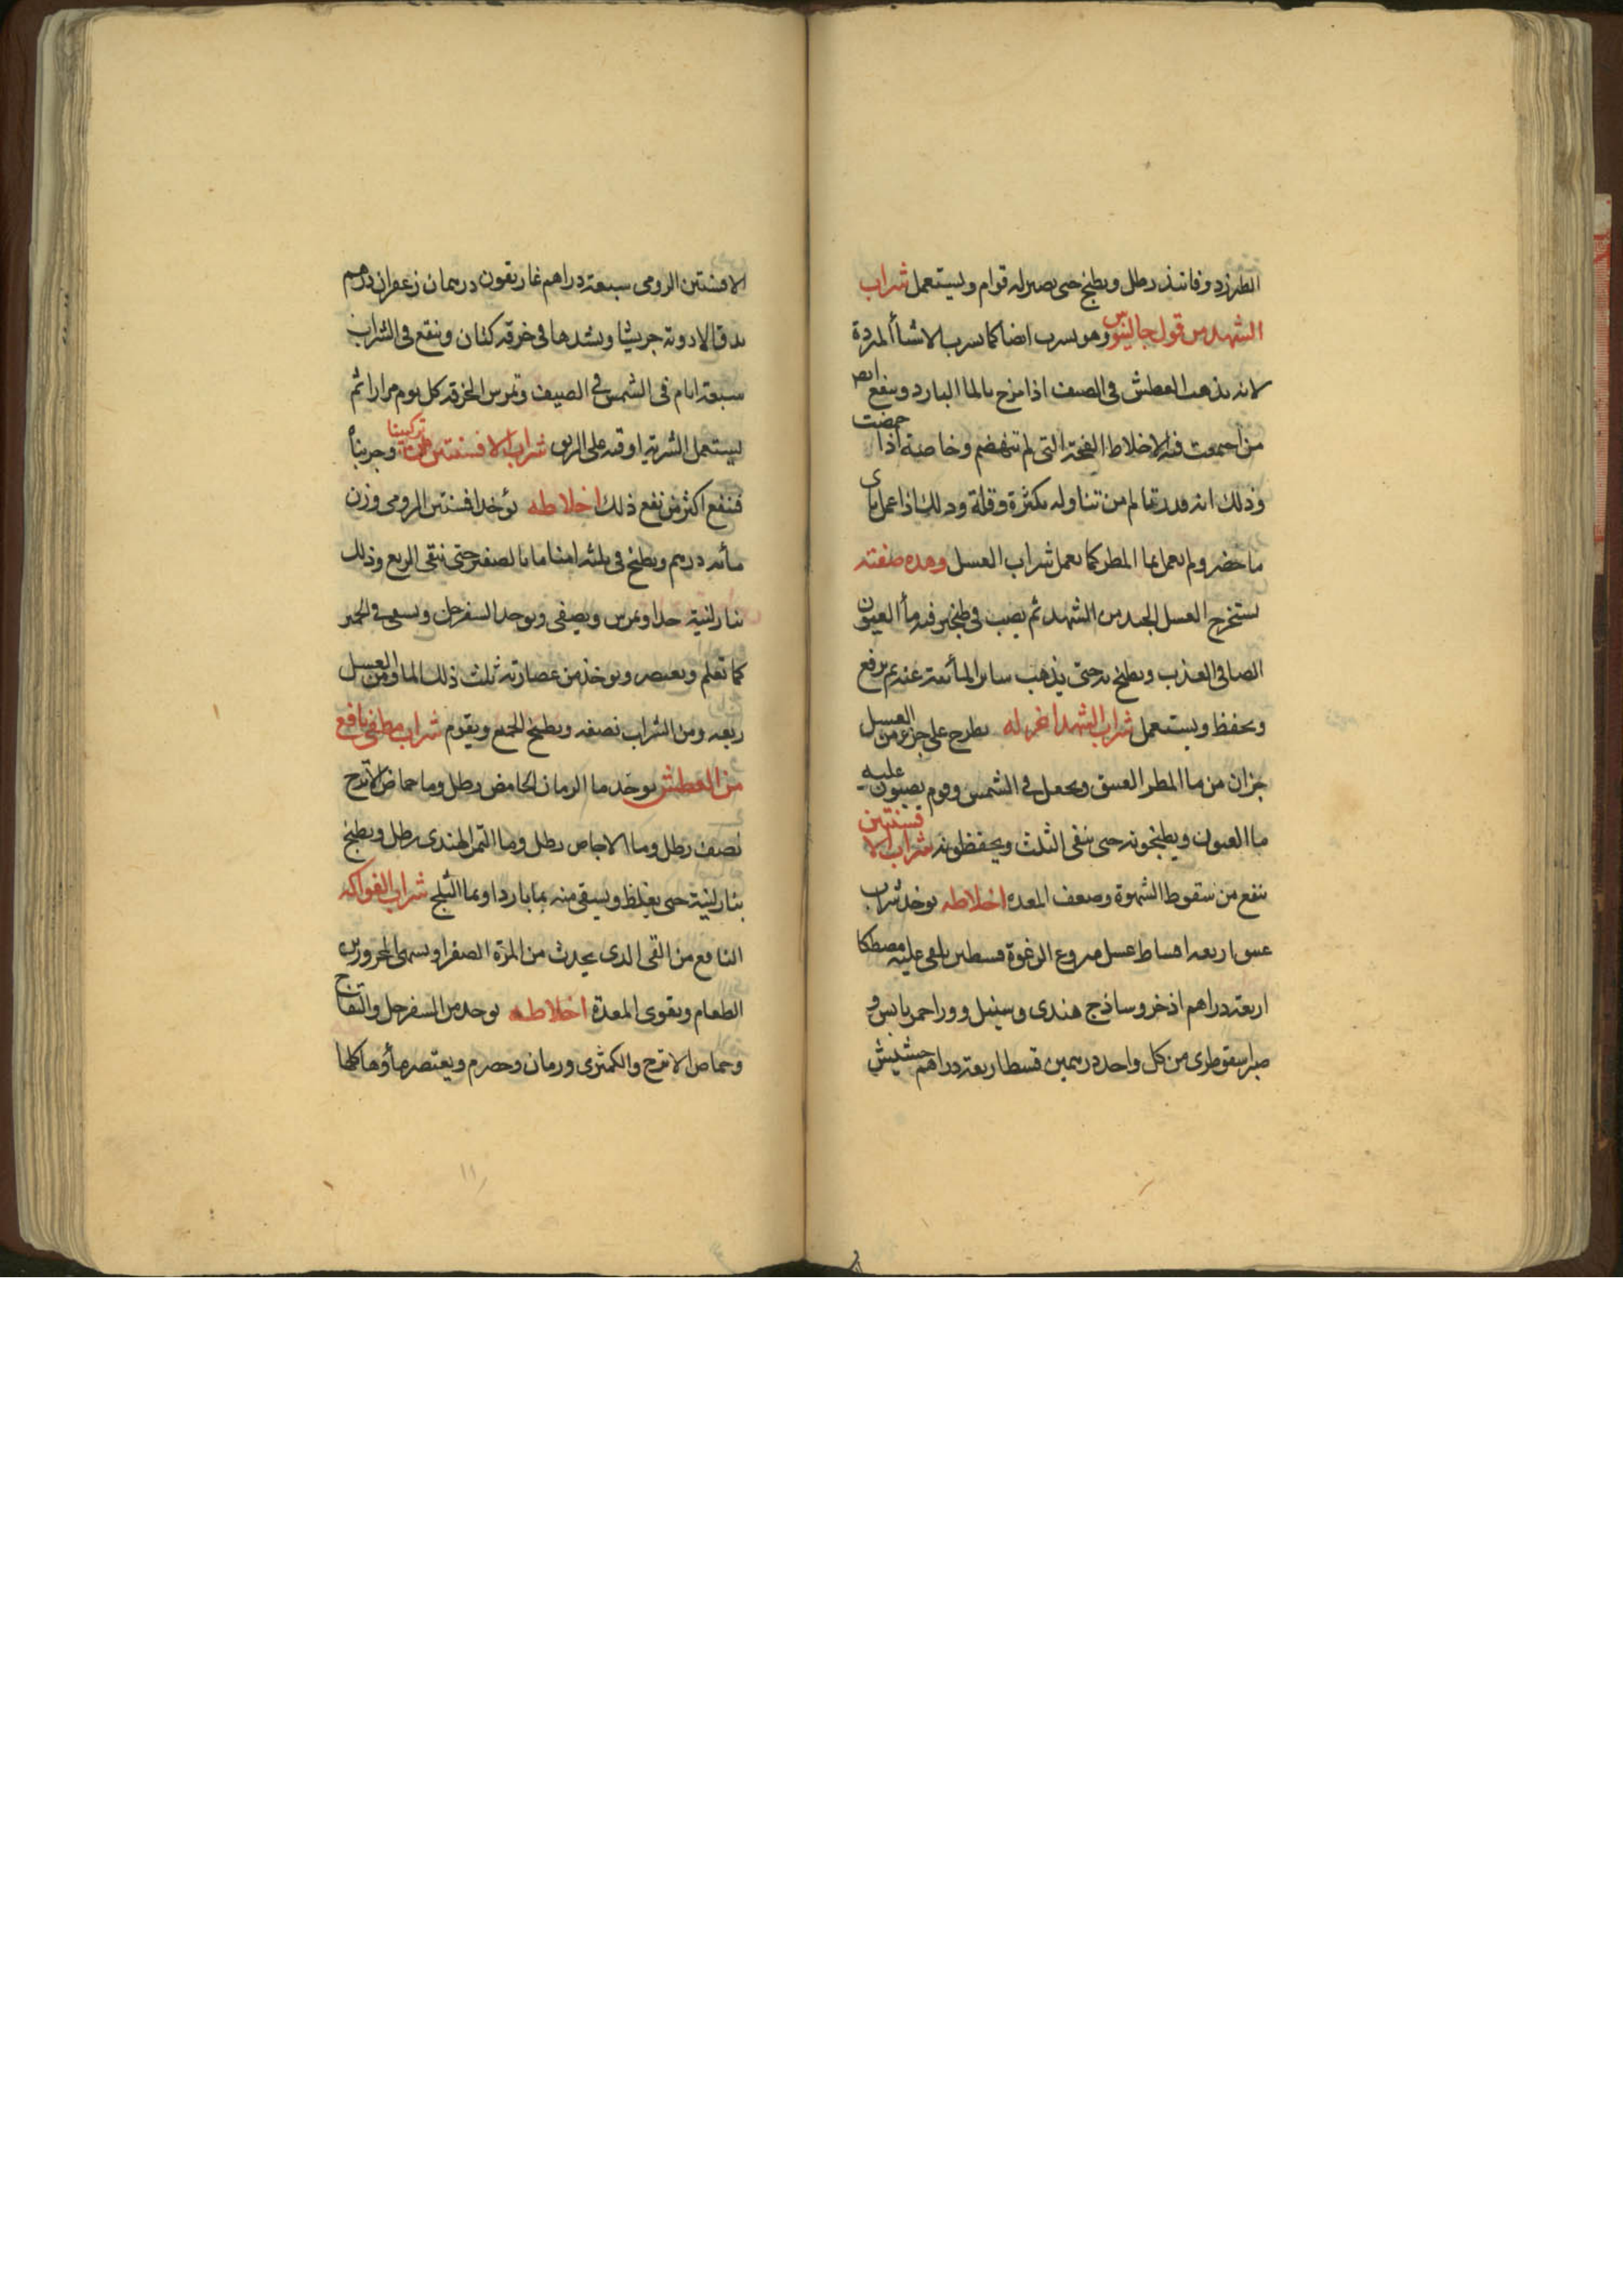 الطبرزد وفانيذ رطل ويطبخ حتى يصير له قوام ويستعمل شراب
الشهد من قول جالينوس وهو يشرب ايضا كما يشرب الاشيا المبردة
لانه يذهب العطش فى الصيف اذا مزج بالما البارد وينفع ايض
من اجتمعت فيه الاخلاط الفجة التى لم تنهضم وخاصة اذا حمضت
وذلك انه من تناوله بكثرة وقلة وذلك اذا عمل باى
ما حضر ولم يعمل بما المطر كما يعمل شراب العسل وهذه صفته
يستخرج العسل الجيد من الشهد ثم يصب فى طنجير فيه مأ العيون
الصافى العذب ويطبخ به حتى يذهب ساير المأئية عنه ثم يرفع
ويحفظ ويستعمل شراب الشهد اخر له يطرح على جزء من العسل
جزان من ما المطر العتيق ويجعل فى الشمس وقوم يصبون عليه
ما العيون ويطبخونه حتى يبقى الثلث ويحفظونه شراب الافسنتين
ينفع من سقوط الشهوة وضعف المعده اخلاطه يوخذ شراب
عتيق اربعه اقساط عسل منزوع الرغوة قسطين يلقى عليه مصطكا
اربعة دراهم اذخر وساذج هندى وسنبل وورد احمر يابس و
صبر اسقوطرى من كل واحد درهمين قسط اربعة دراهم حشيش
الافسنتين الرومى سبعة دراهم غاريقون درهمان زعفران درهم
يدق الادوية جريشا ويشدها فى خرقه كتان وينقع فى الشراب
سبعة ايام فى الشمس فى الصيف وتمرس الخرقه كل يوم مرارا ثم
يستعمل الشربة اوقيه على الريق شراب الافسنتين من تركيبنا وجربناه
فنفع اكثر من نفع ذلك اخلاطه يؤخذ افسنتين الرومى وزن
مأئه درهم ويطبخ فى ثلثه امنا ما بالصغير حتى يبقى الربع وذلك
بنار لينة جدا ويمرس ويصفى ويوخذ السفرجل ويشوى فى الخمير
كما تعلم ويعتصر ويوخذ من عصارته ثلث ذلك الما ومن العسل
ربعه ومن الشراب نصفه ويطبخ الجميع ويقوم شراب مطفى نافع
من العطش يوخذ ما الرمان الحامض رطل وما حماض الاترج
نصف رطل وما الاجاص رطل وما التمر الهندى رطل ويطبخ
بنار لينة حتى يغلظ ويسقى منه بما بارد او بما الثلج شراب الفواكه
النافع من القى الذى يحدث من المرة الصفرا ويشهى المحرورين
الطعام ويقوى المعدة اخلاطه يوخذ من السفرجل والتفاح
وحماض الاترج والكمثرى ورمان وحصرم ويعتصر مأؤها كلها
١١